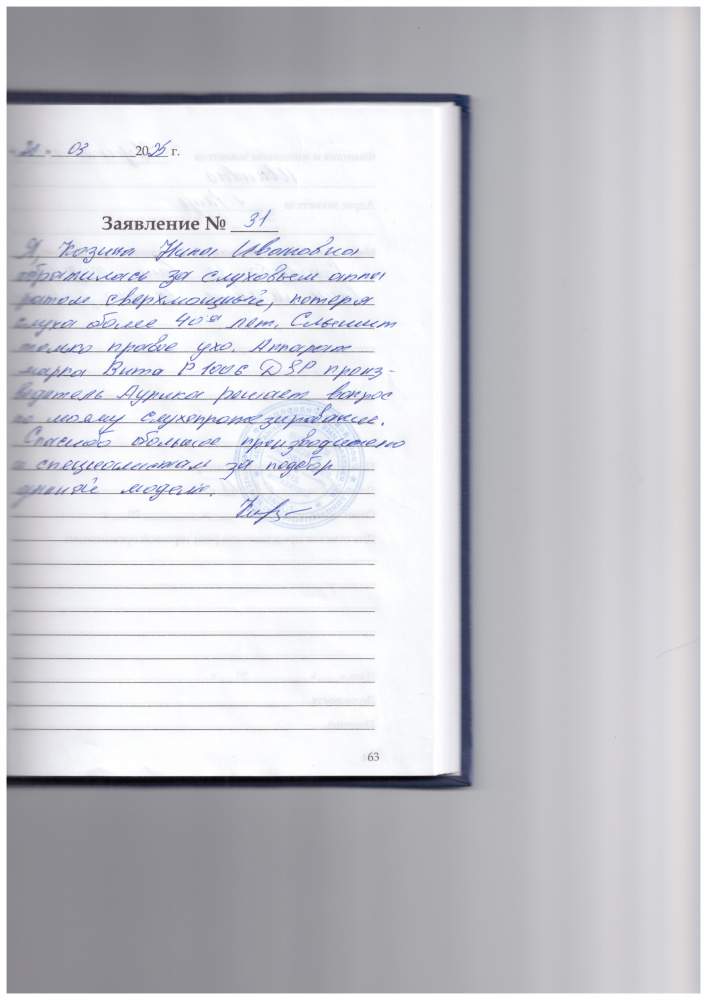 03 2025 г.
Заявление № 31
Я, Козина Нина Ивановна
обратилась за слуховым аппа
ратом сверхмощный, потеря
слуха более 40-а лет. Слышит
только правое ухо. Аппарат
марка Вита Р 1006 DSP произ-
водитель Аурика решает вопрос
по моему слухопротезированию.
Спасибо большое производителю
и специалистам за подбор
данной модели.
63